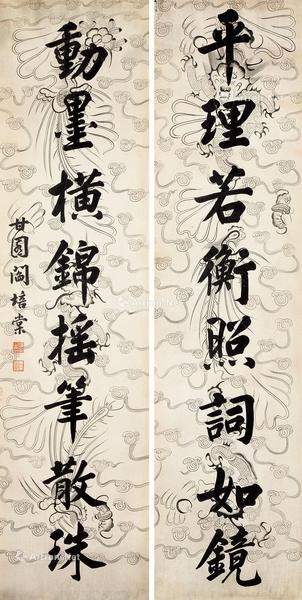 平理若衡照詞如鏡
動墨橫錦搖筆散珠
甘園閻培棠